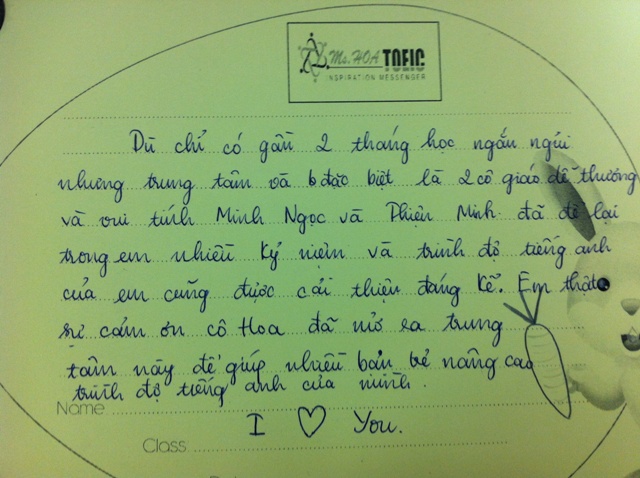 Ms. HOA TOEIC
INSPIRATION MESSENGER
Dù chỉ có gần 2 tháng học ngắn ngủi
nhưng trung tâm và đặc biệt là 2 cô giáo dễ thương
và vui tính Minh Ngọc và Thiện Minh đã để lại
trong em nhiều kỷ niệm và trình độ tiếng anh
của em cũng được cải thiện đáng kể. Em thật
sự cảm ơn cô Hoa đã mở ra trung
tâm này để giúp nhiều bạn trẻ nâng cao
trình độ tiếng anh của mình.
Name
I ♡ You.
Class